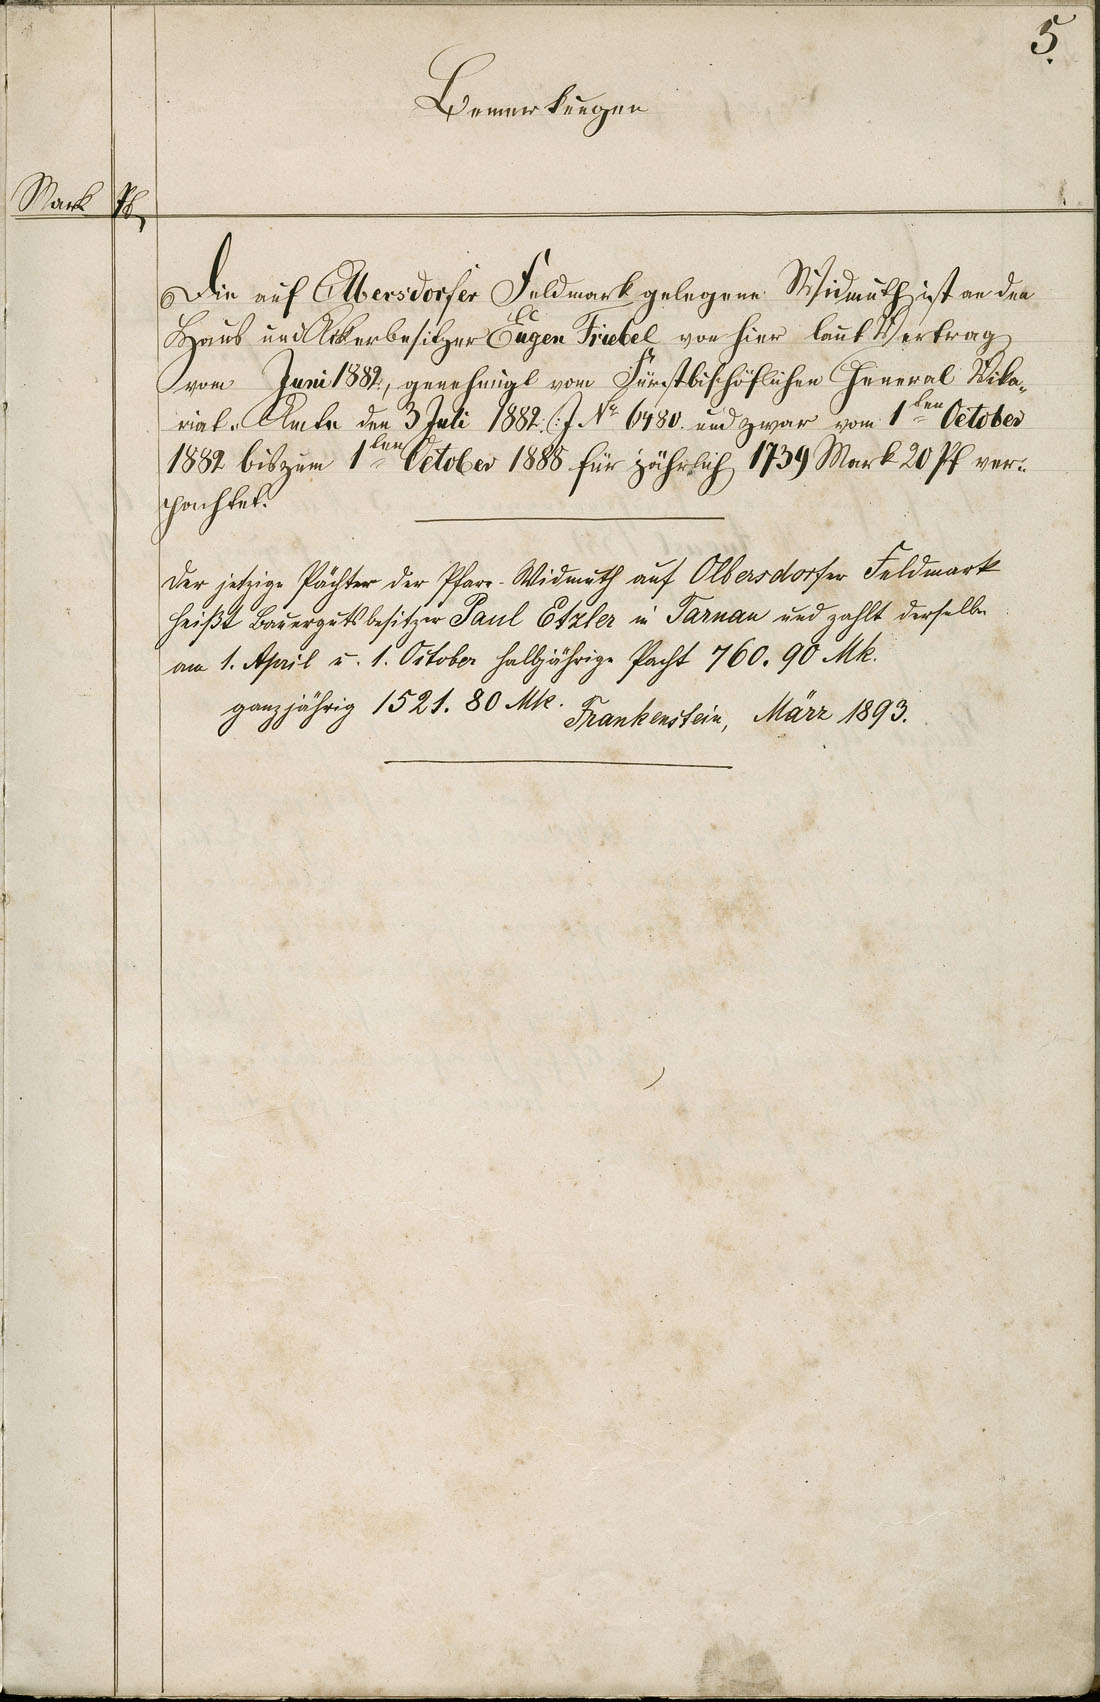 5.
Bemerkungen
Mark Pf.
Die auf Olbersdorfer Feldmark gelegene Widmuth ist an den
Haus und Ackerbesitzer Eugen Friebel von hier laut Vertrag
vom Juni 1882, genehmigt vom Fürstbischöflichen General Vika-
riat-Amte den 3 Juli 1882 (: J. No 6480. und zwar vom 1ten October
1882 bis zum 1ten October 1888 für jährlich 1739 Mark 20 Pf ver-
pachtet.
Der jetzige Pächter der Pfarr-Widmuth auf Olbersdorfer Feldmark
heißt Bauergutsbesitzer Paul Etzler in Tarnau und zahlt derselbe
am 1. April u. 1. October halbjährige Pacht 760. 90 Mk.
ganzjährig 1521. 80 Mk. Frankenstein, März 1893.